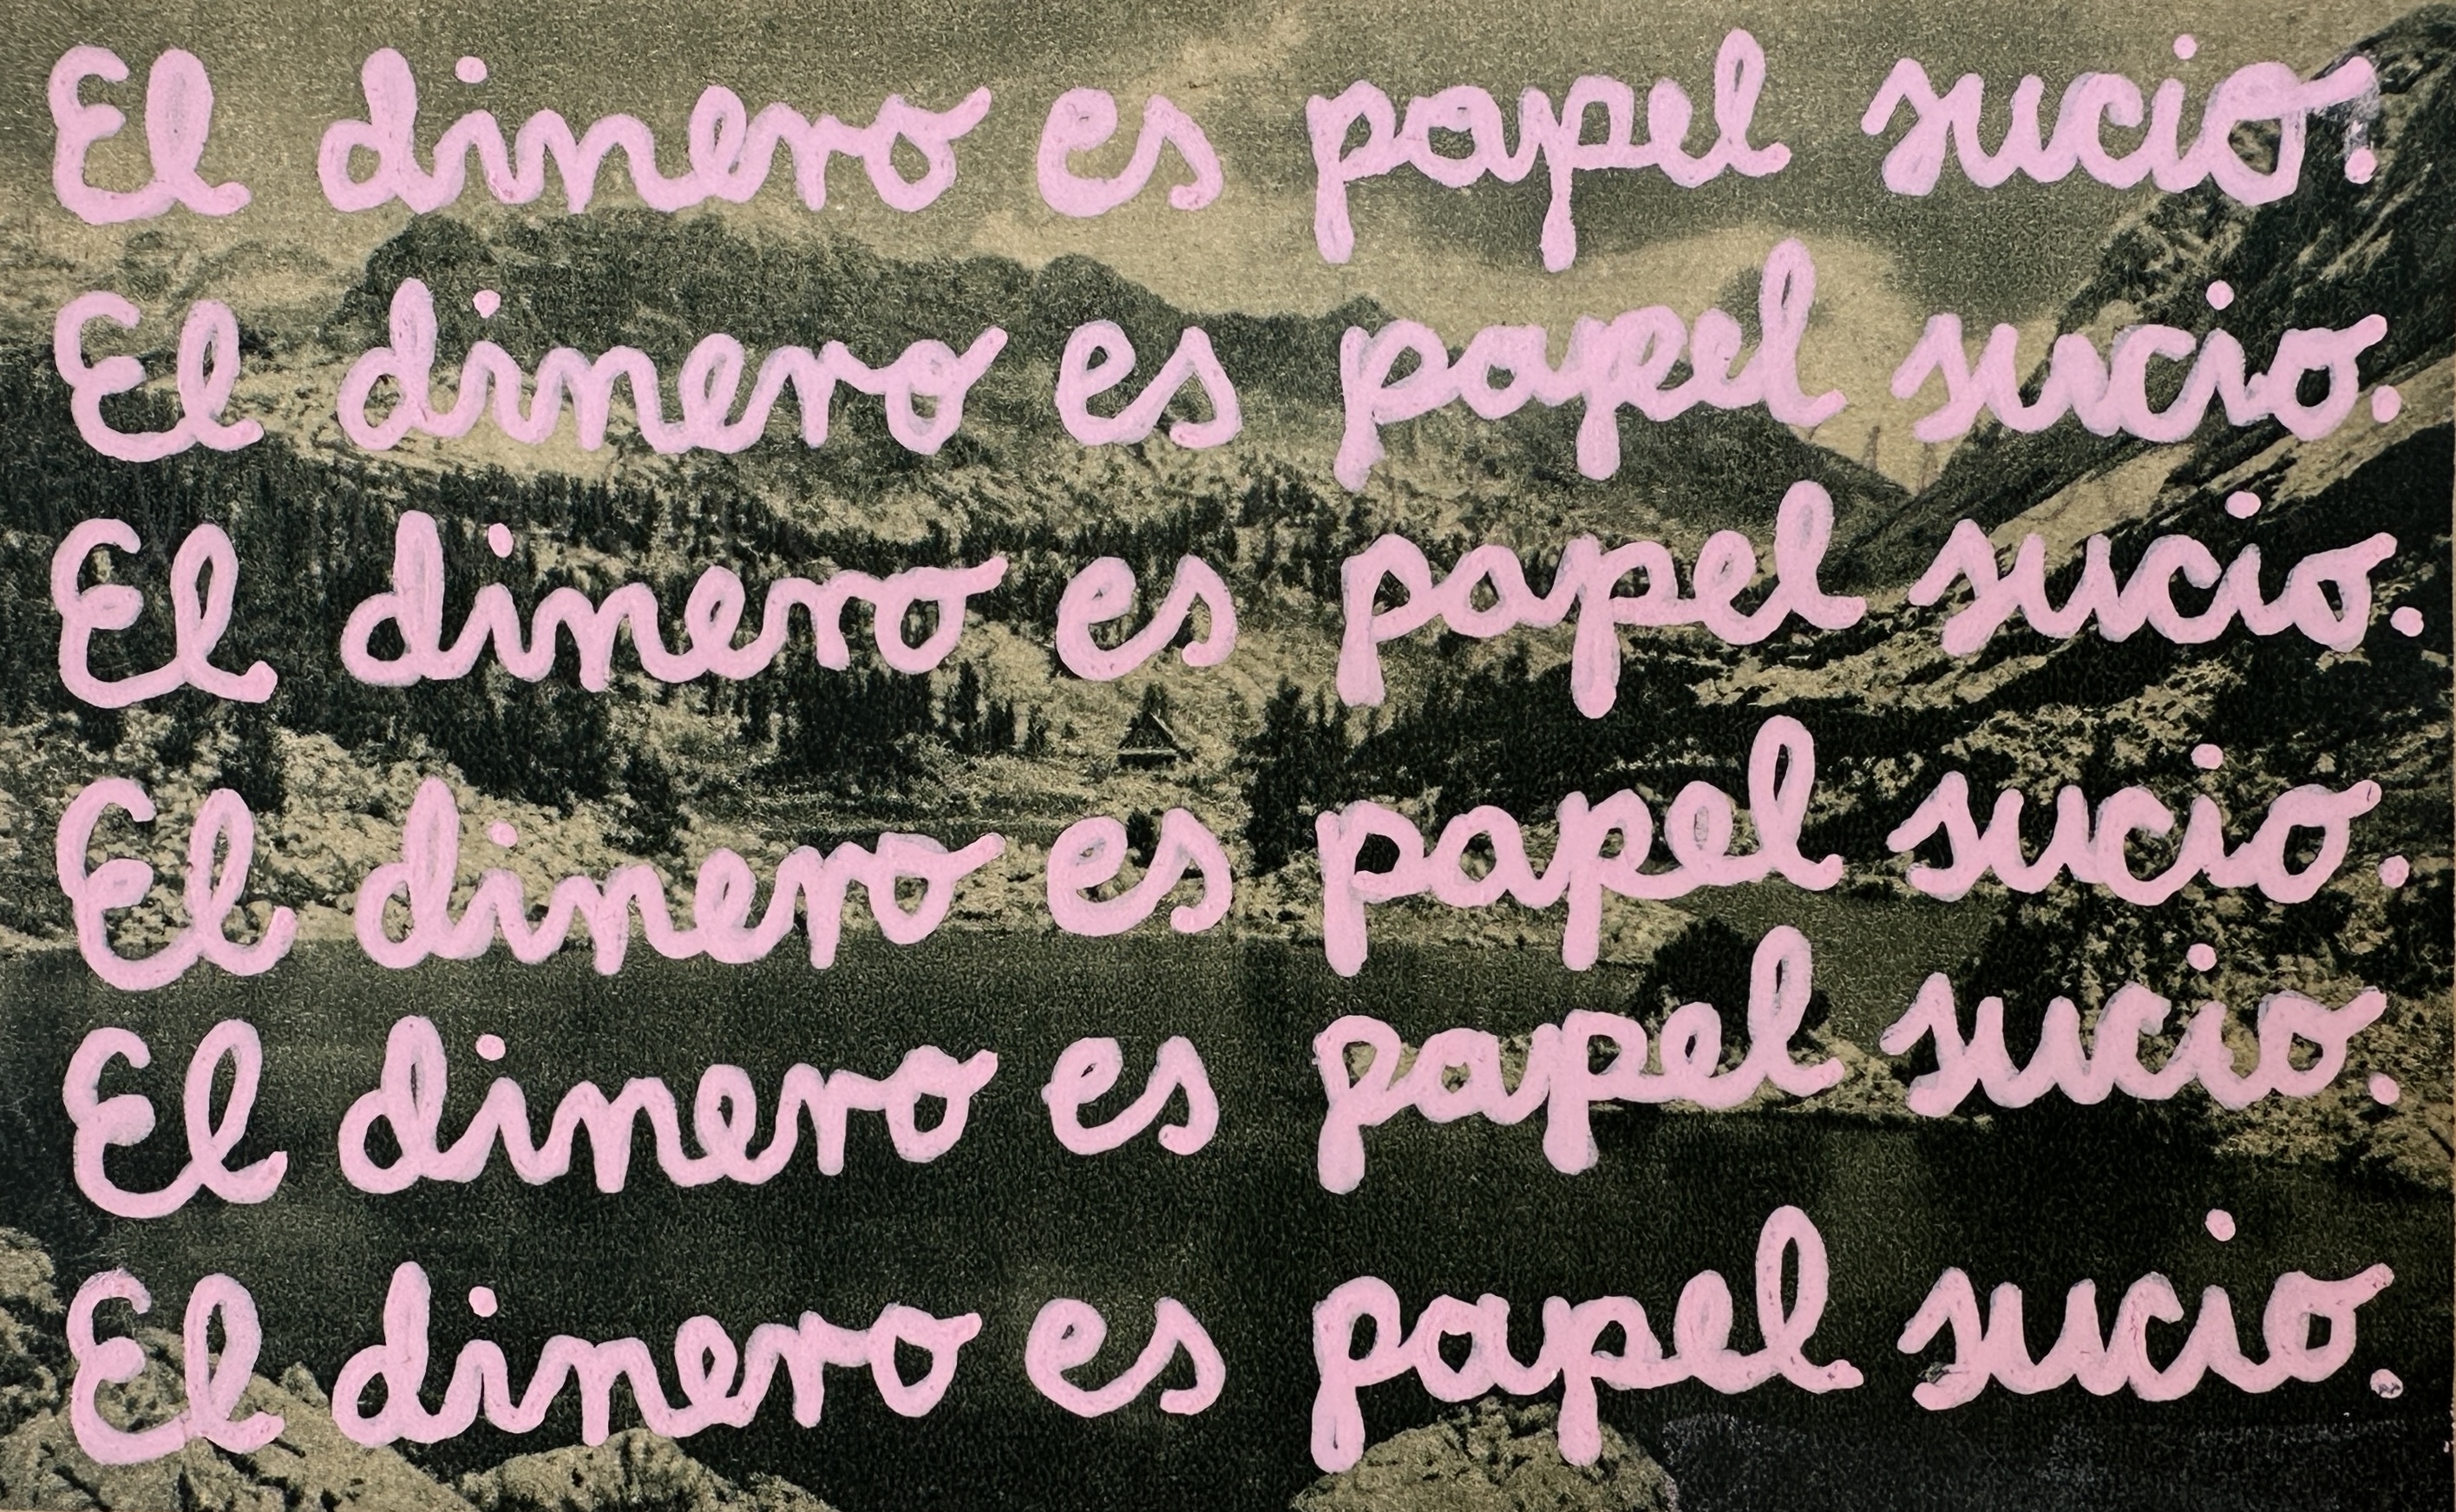 El dinero es papel sucio.
El dinero es papel sucio.
El dinero es papel sucio.
El dinero es papel sucio.
El dinero es papel sucio.
El dinero es papel sucio.